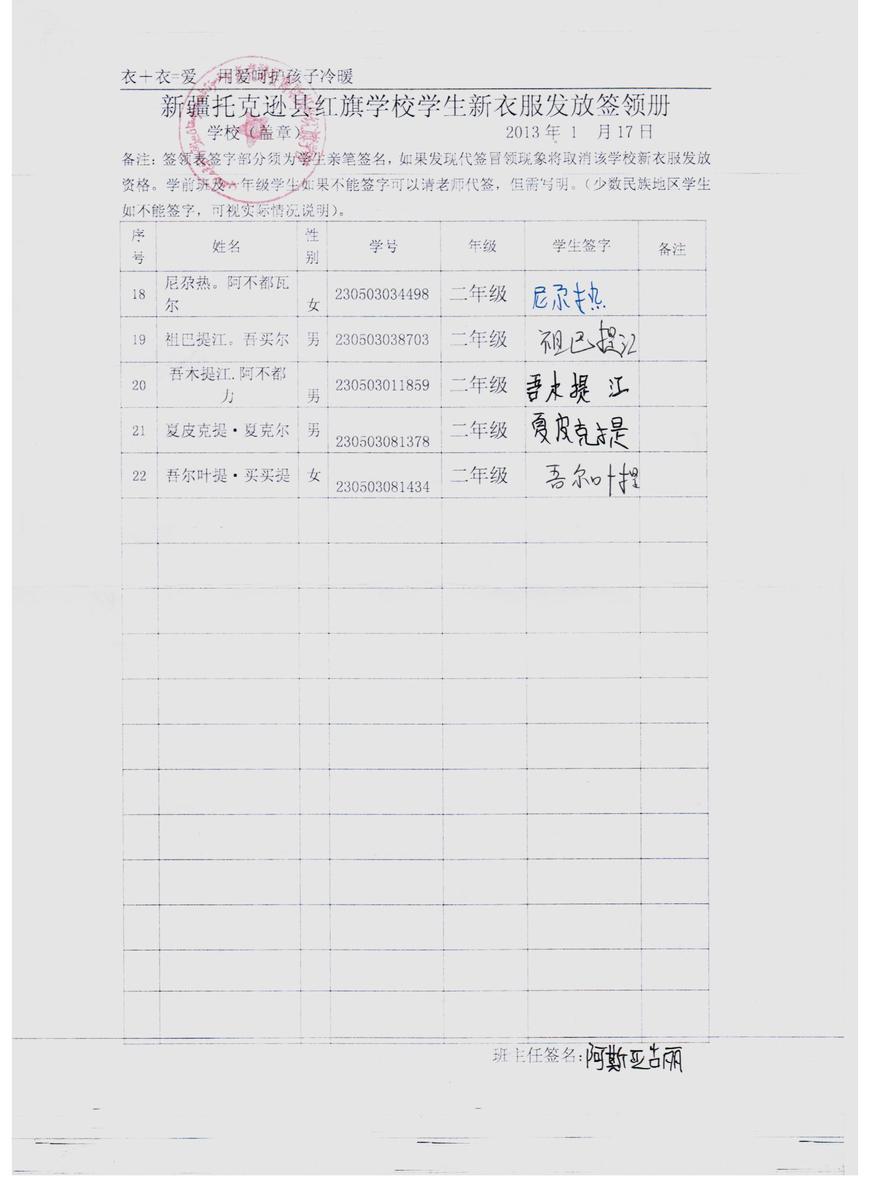 衣+衣=爱 用爱呵护孩子冷暖
新疆托克逊县红旗学校学生新衣服发放签领册
学校（盖章） 2013年 1 月17日
备注：签领表签字部分须为学生亲笔签名，如果发现代签冒领现象将取消该学校新衣服发放
资格。学前班及一年级学生如果不能签字可以请老师代签，但需写明。（少数民族地区学生
如不能签字，可视实际情况说明）。
序号 姓名 性别 学号 年级 学生签字 备注
18 尼尕热。阿不都瓦尔 女 230503034498 二年级 尼尕热
19 祖巴提江。吾买尔 男 230503038703 二年级 祖巴提江
20 吾木提江.阿不都力 男 230503011859 二年级 吾木提江
21 夏皮克提·夏克尔 男 230503081378 二年级 夏皮克提
22 吾尔叶提·买买提 女 230503081434 二年级 吾尔叶提
班主任签名：阿斯亚古丽